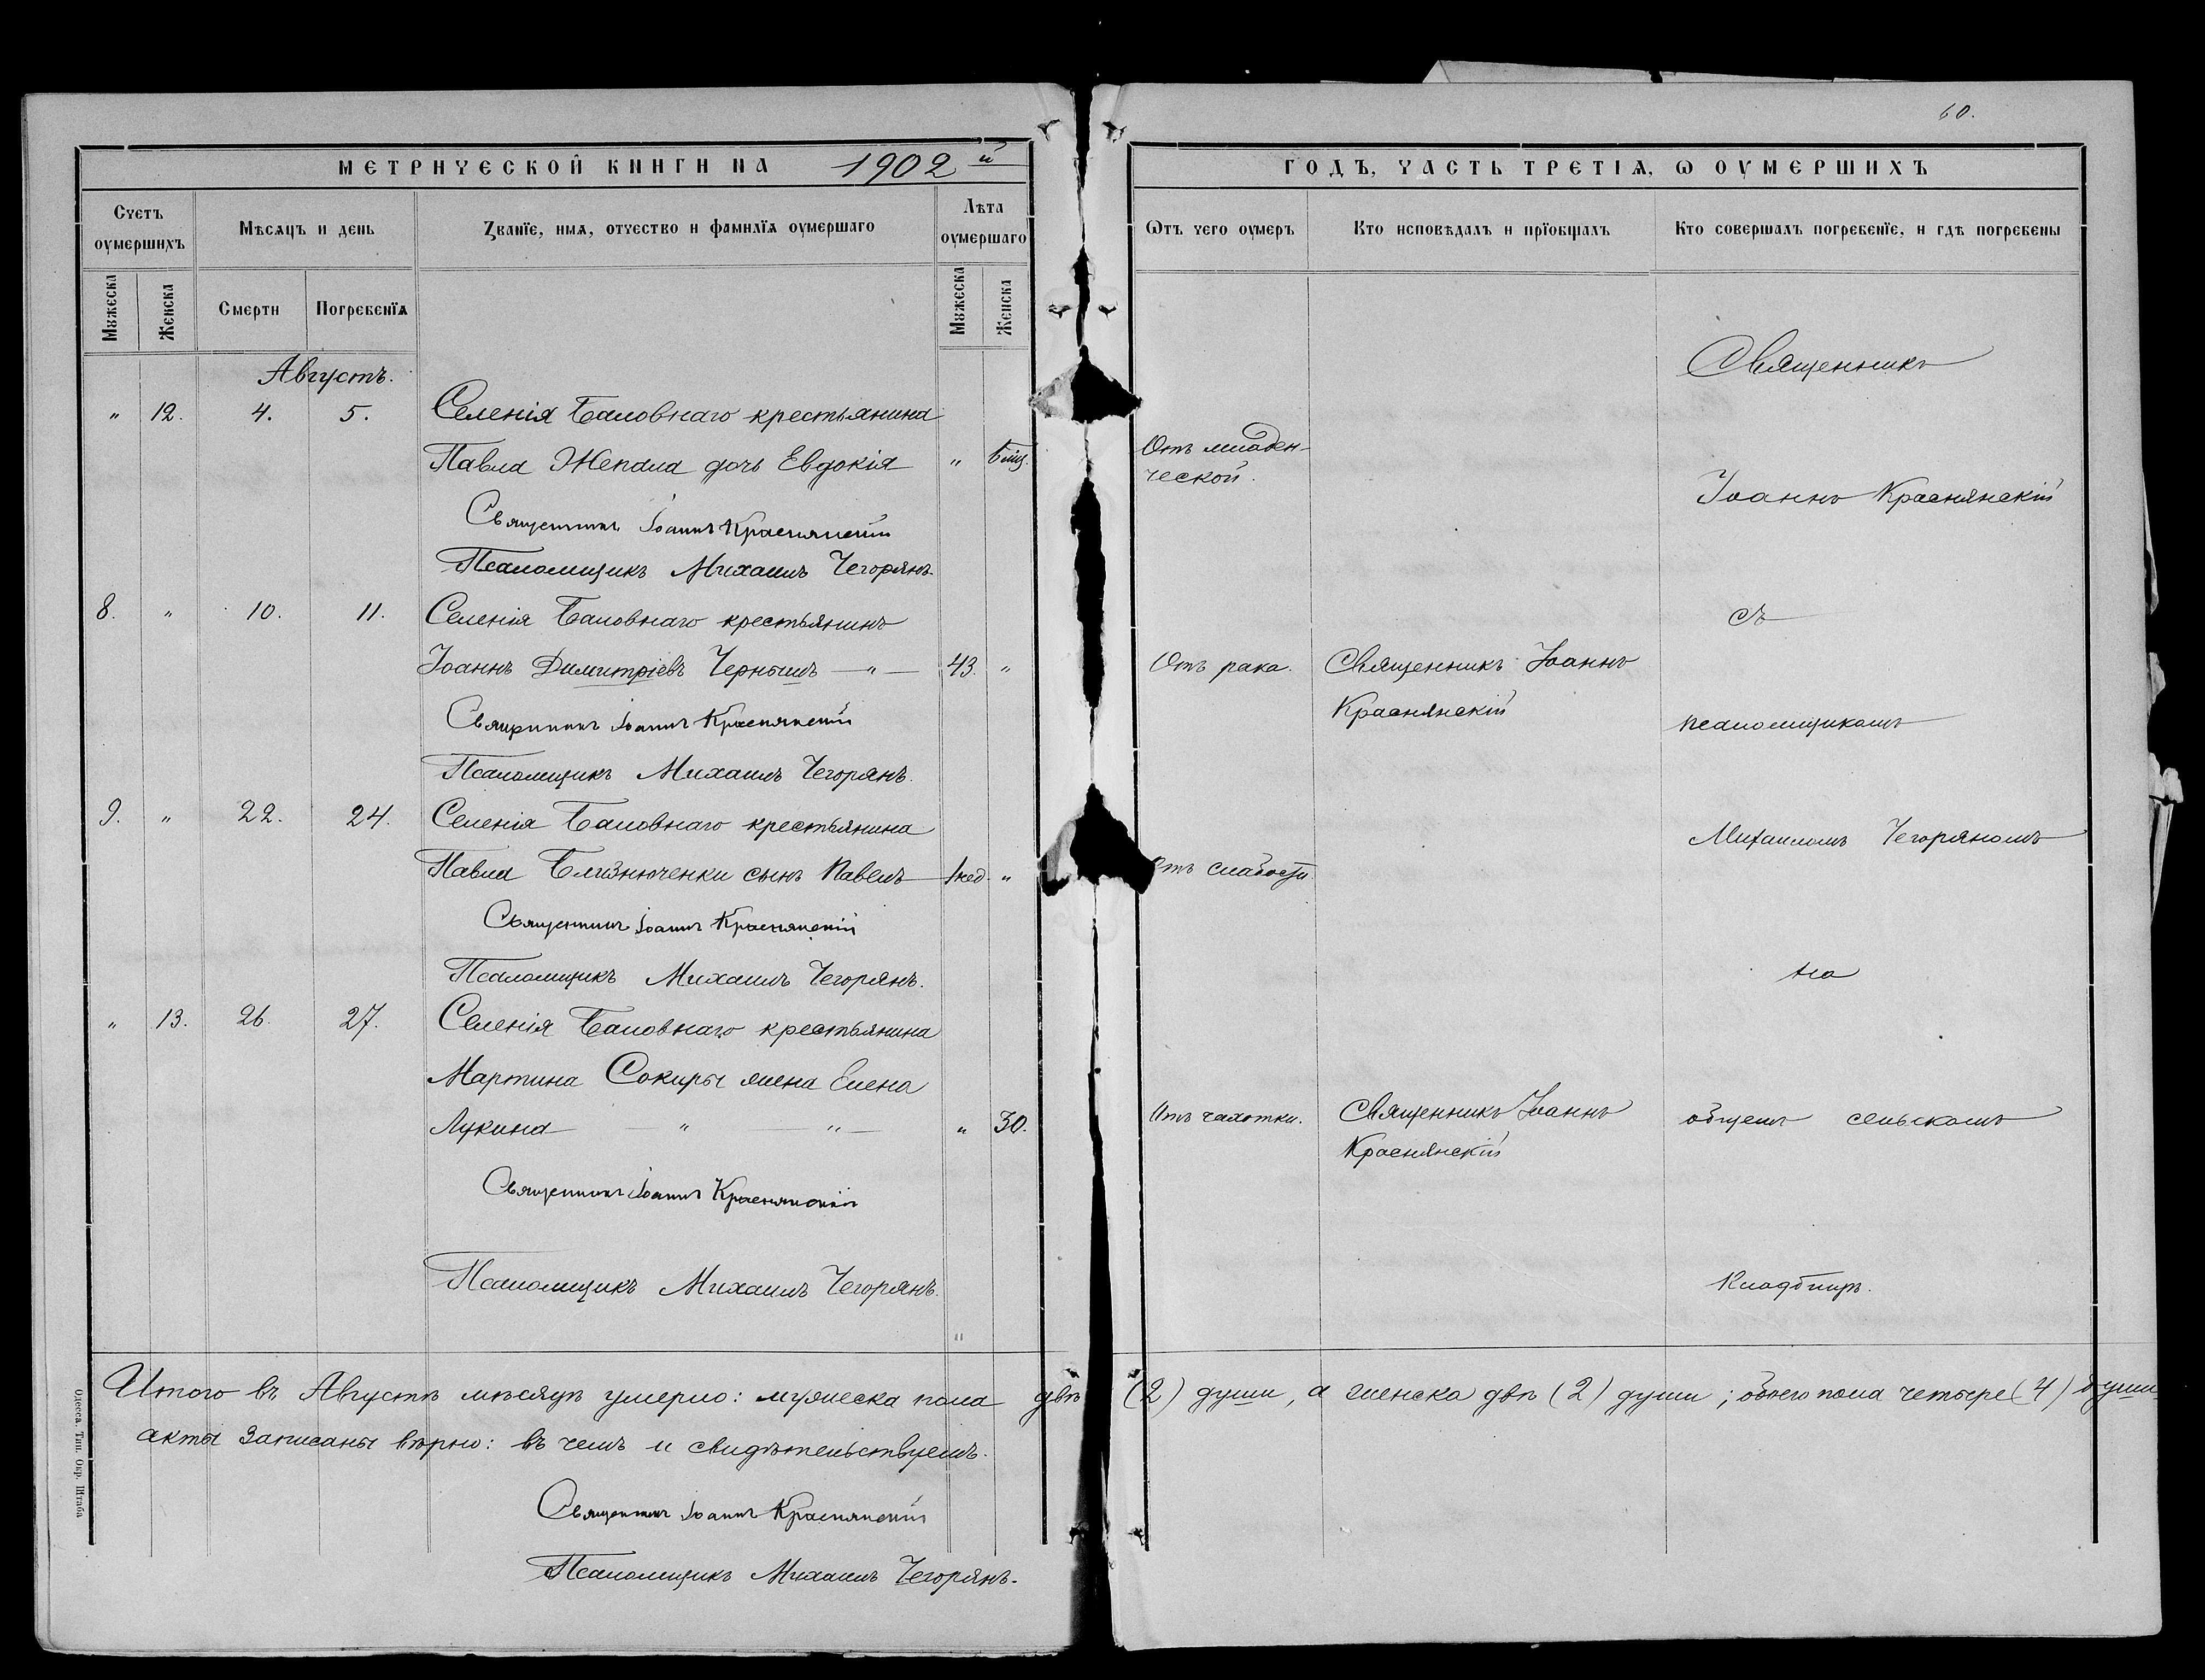 60.
МЕТРИЧЕСКОЙ КНИГИ НА 1902 й ГОДЪ, ЧАСТЬ ТРЕТІѦ, Ѡ ОУМЕРШИХЪ
Счетъ оумершихъ
Мѣсѧцъ и день
Званїе, имѧ, отчество и фамилїѧ оумершаго
Лѣта оумершаго
Ѿтъ чего оумеръ
Кто исповѣдалъ и прїобщалъ
Кто совершалъ погребенїе, и гдѣ погребены
Мꙋжеска
Женска
Смерти
Погребенїѧ
Мꙋжеска
Женска
Августъ.
Священникъ
" 12. 4. 5. Селенія Баловнаго крестьянина
Павла Жепала дочь Евдокія " 6 мц. Отъ младен-
ческой.
Іоаннъ Краснянскій
Священникъ Іоаннъ Краснянскій
Псаломщикъ Михаилъ Чегорянъ.
8. " 10. 11. Селенія Баловнаго крестьянинъ
съ
Іоаннъ Димитріевъ Чернышъ — " — 43. " Отъ рака. Священникъ Іоаннъ
Краснянскій
Священникъ Іоаннъ Краснянскій
псаломщикомъ
Псаломщикъ Михаилъ Чегорянъ.
9. " 22. 24. Селенія Баловнаго крестьянина
Михаиломъ Чегоряномъ
Павла Близнюченки сынъ Павелъ 1 нед. " Отъ слабости
Священникъ Іоаннъ Краснянскій
Псаломщикъ Михаилъ Чегорянъ.
на
" 13. 26. 27. Селенія Баловнаго крестьянина
Мартина Сокиры жена Елена
Лукина — " — " — " 30. Отъ чахотки. Священникъ Іоаннъ
Краснянскій
общемъ сельскомъ
Священникъ Іоаннъ Краснянскій
Псаломщикъ Михаилъ Чегорянъ.
кладбищѣ.
"
Итого въ Августѣ мѣсяцѣ умерло: мужеска пола двѣ (2) души, а женска двѣ (2) души; обоего пола четыре (4) души
акты записаны вѣрно: въ чемъ и свидѣтельствуемъ.
Священникъ Іоаннъ Краснянскій
Псаломщикъ Михаилъ Чегорянъ.
Одесса. Тип. Окр. Штаба